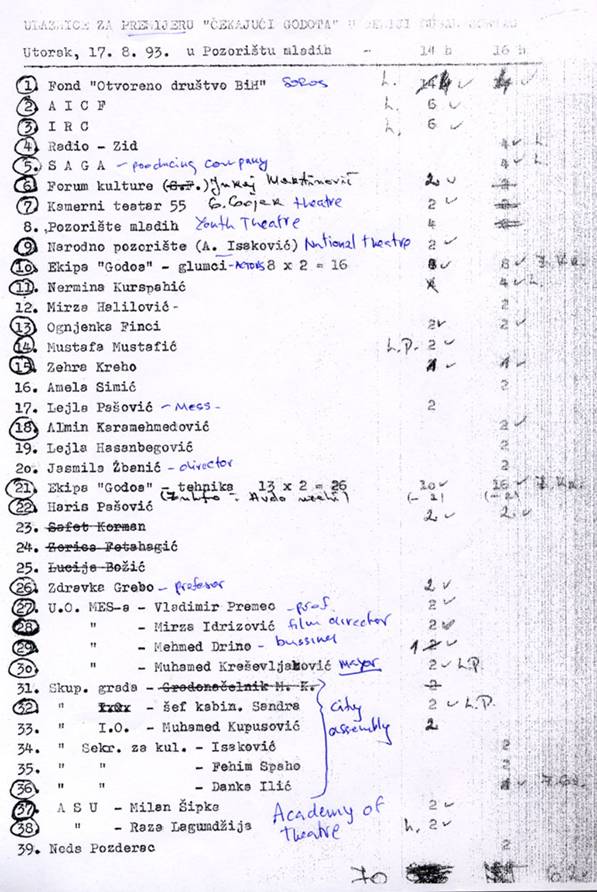 ULAZNICE ZA PREMIJERU "ČEKAJUĆI GODOTA" U
Utorak, 17. 8. 93. u Pozorištu mladih - 14 h 16 h
1. Fond "Otvoreno društvo BiH" SOROS L. 14 4 ✓ 4 ✓
2. A I C F L. 6 ✓
3. I R C L. 6 ✓
4. Radio - Zid 4 ✓ L.
5. S A G A - producing company 4 ✓ L.
6. Forum kulture 2 ✓ 2
7. Kamerni teatar 55 theatre 2 ✓
8. Pozorište mladih Youth Theatre 4
9. Narodno pozorište (A. Isaković) National theatre 2 ✓
10. Ekipa "Godoa" - glumci - ACTORS 8 x 2 = 16 8 ✓ 8 ✓
11. Nermina Kurspahić 4 ✓ L.
12. Mirza Halilović - 2
13. Ognjenka Finci 2 ✓ 2 ✓
14. Mustafa Mustafić L.P. 2 ✓
15. Zehra Kreho 1 ✓ 1 ✓
16. Amela Simić 2
17. Lejla Pašović - MESS - 2
18. Almin Karamehmedović 2 ✓
19. Lejla Hasanbegović 2
20. Jasmila Žbanić - director 2
21. Ekipa "Godoa" - tehnika 13 x 2 = 26 10 ✓ 16 ✓
(- 2) (- 2)
22. Haris Pašović 2 ✓ 2 ✓
23. Safet Korman
24. Zorica Fetahagić
25. Lucija Božić
26. Zdravko Grebo - profesor 2 ✓
27. U.O. MES-a - Vladimir Premec - prof. 2 ✓
28. " - Mirza Idrizović film director 2 ✓
29. " - Mehmed Drino - bussines 1 2 ✓
30. " - Muhamed Kreševljaković mayor 2 ✓ L.P.
31. Skup. grada - Gradonačelnik M. K. 2
32. " šef kabin. Sandra 2 ✓ L.P.
city assembly
33. " I.O. - Muhamed Kupusović 2
34. " Sekr. za kul. - Isaković 2
35. " " - Fehim Spaho 2
36. " " - Danka Ilić ✓
37. A S U - Milan Šipka 2 ✓
Academy of theatre
38. " - Raza Lagumdžija L. 2 ✓
39. Neda Pozderac 2
70 62